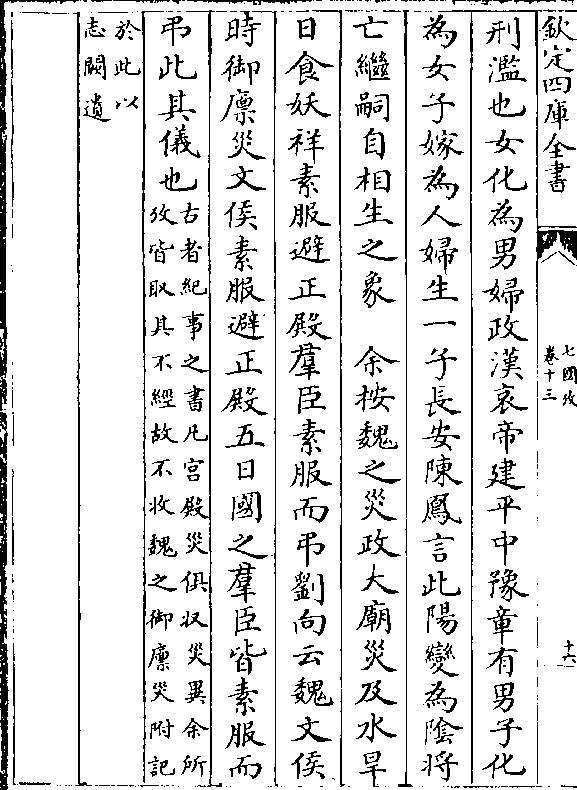 欽定四庫全書
七國攷
卷十三
十六
刑濫也女化為男婦政漢哀帝建平中豫章有男子化
為女子嫁為人婦生一子長安陳鳳言此陽變為隂將
亡繼嗣自相生之象　余按魏之災政大廟災及水旱
日食妖祥素服避正殿羣臣素服而弔劉向云魏文侯
時御廪災文侯素服避正殿五日國之羣臣皆素服而
弔此其儀也
古者紀事之書凡宫殿災俱収災異余所
攷皆取其不經故不收魏之御廪災附記
於此以
志闕遺